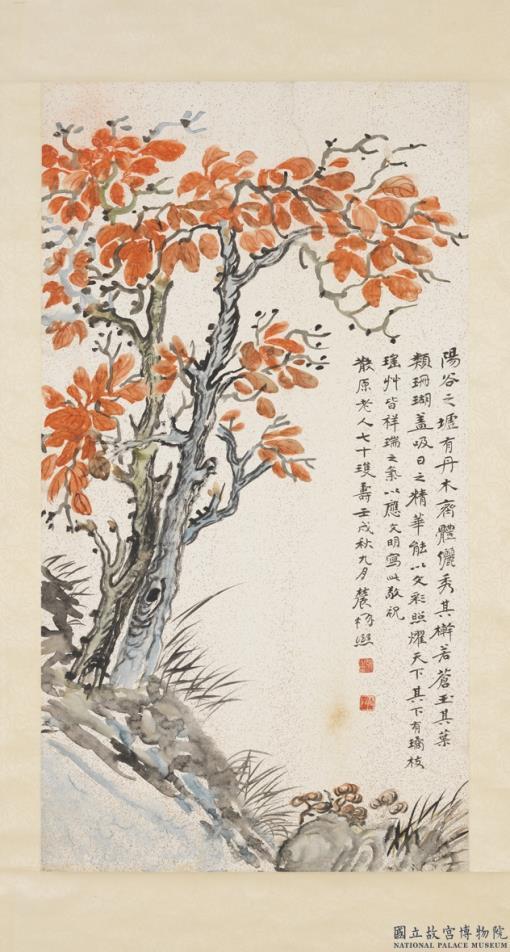 陽谷之壚有丹木齊體儷秀其榦若蒼玉其葉
類珊瑚蓋吸日之精華能以文彩照燿天下其下有瓊枝
瑤艸皆祥瑞之氣以應文明寫此敬祝
散原老人七十雙壽壬戌秋九月農楊熙
國立故宮博物院
NATIONAL PALACE MUSEUM